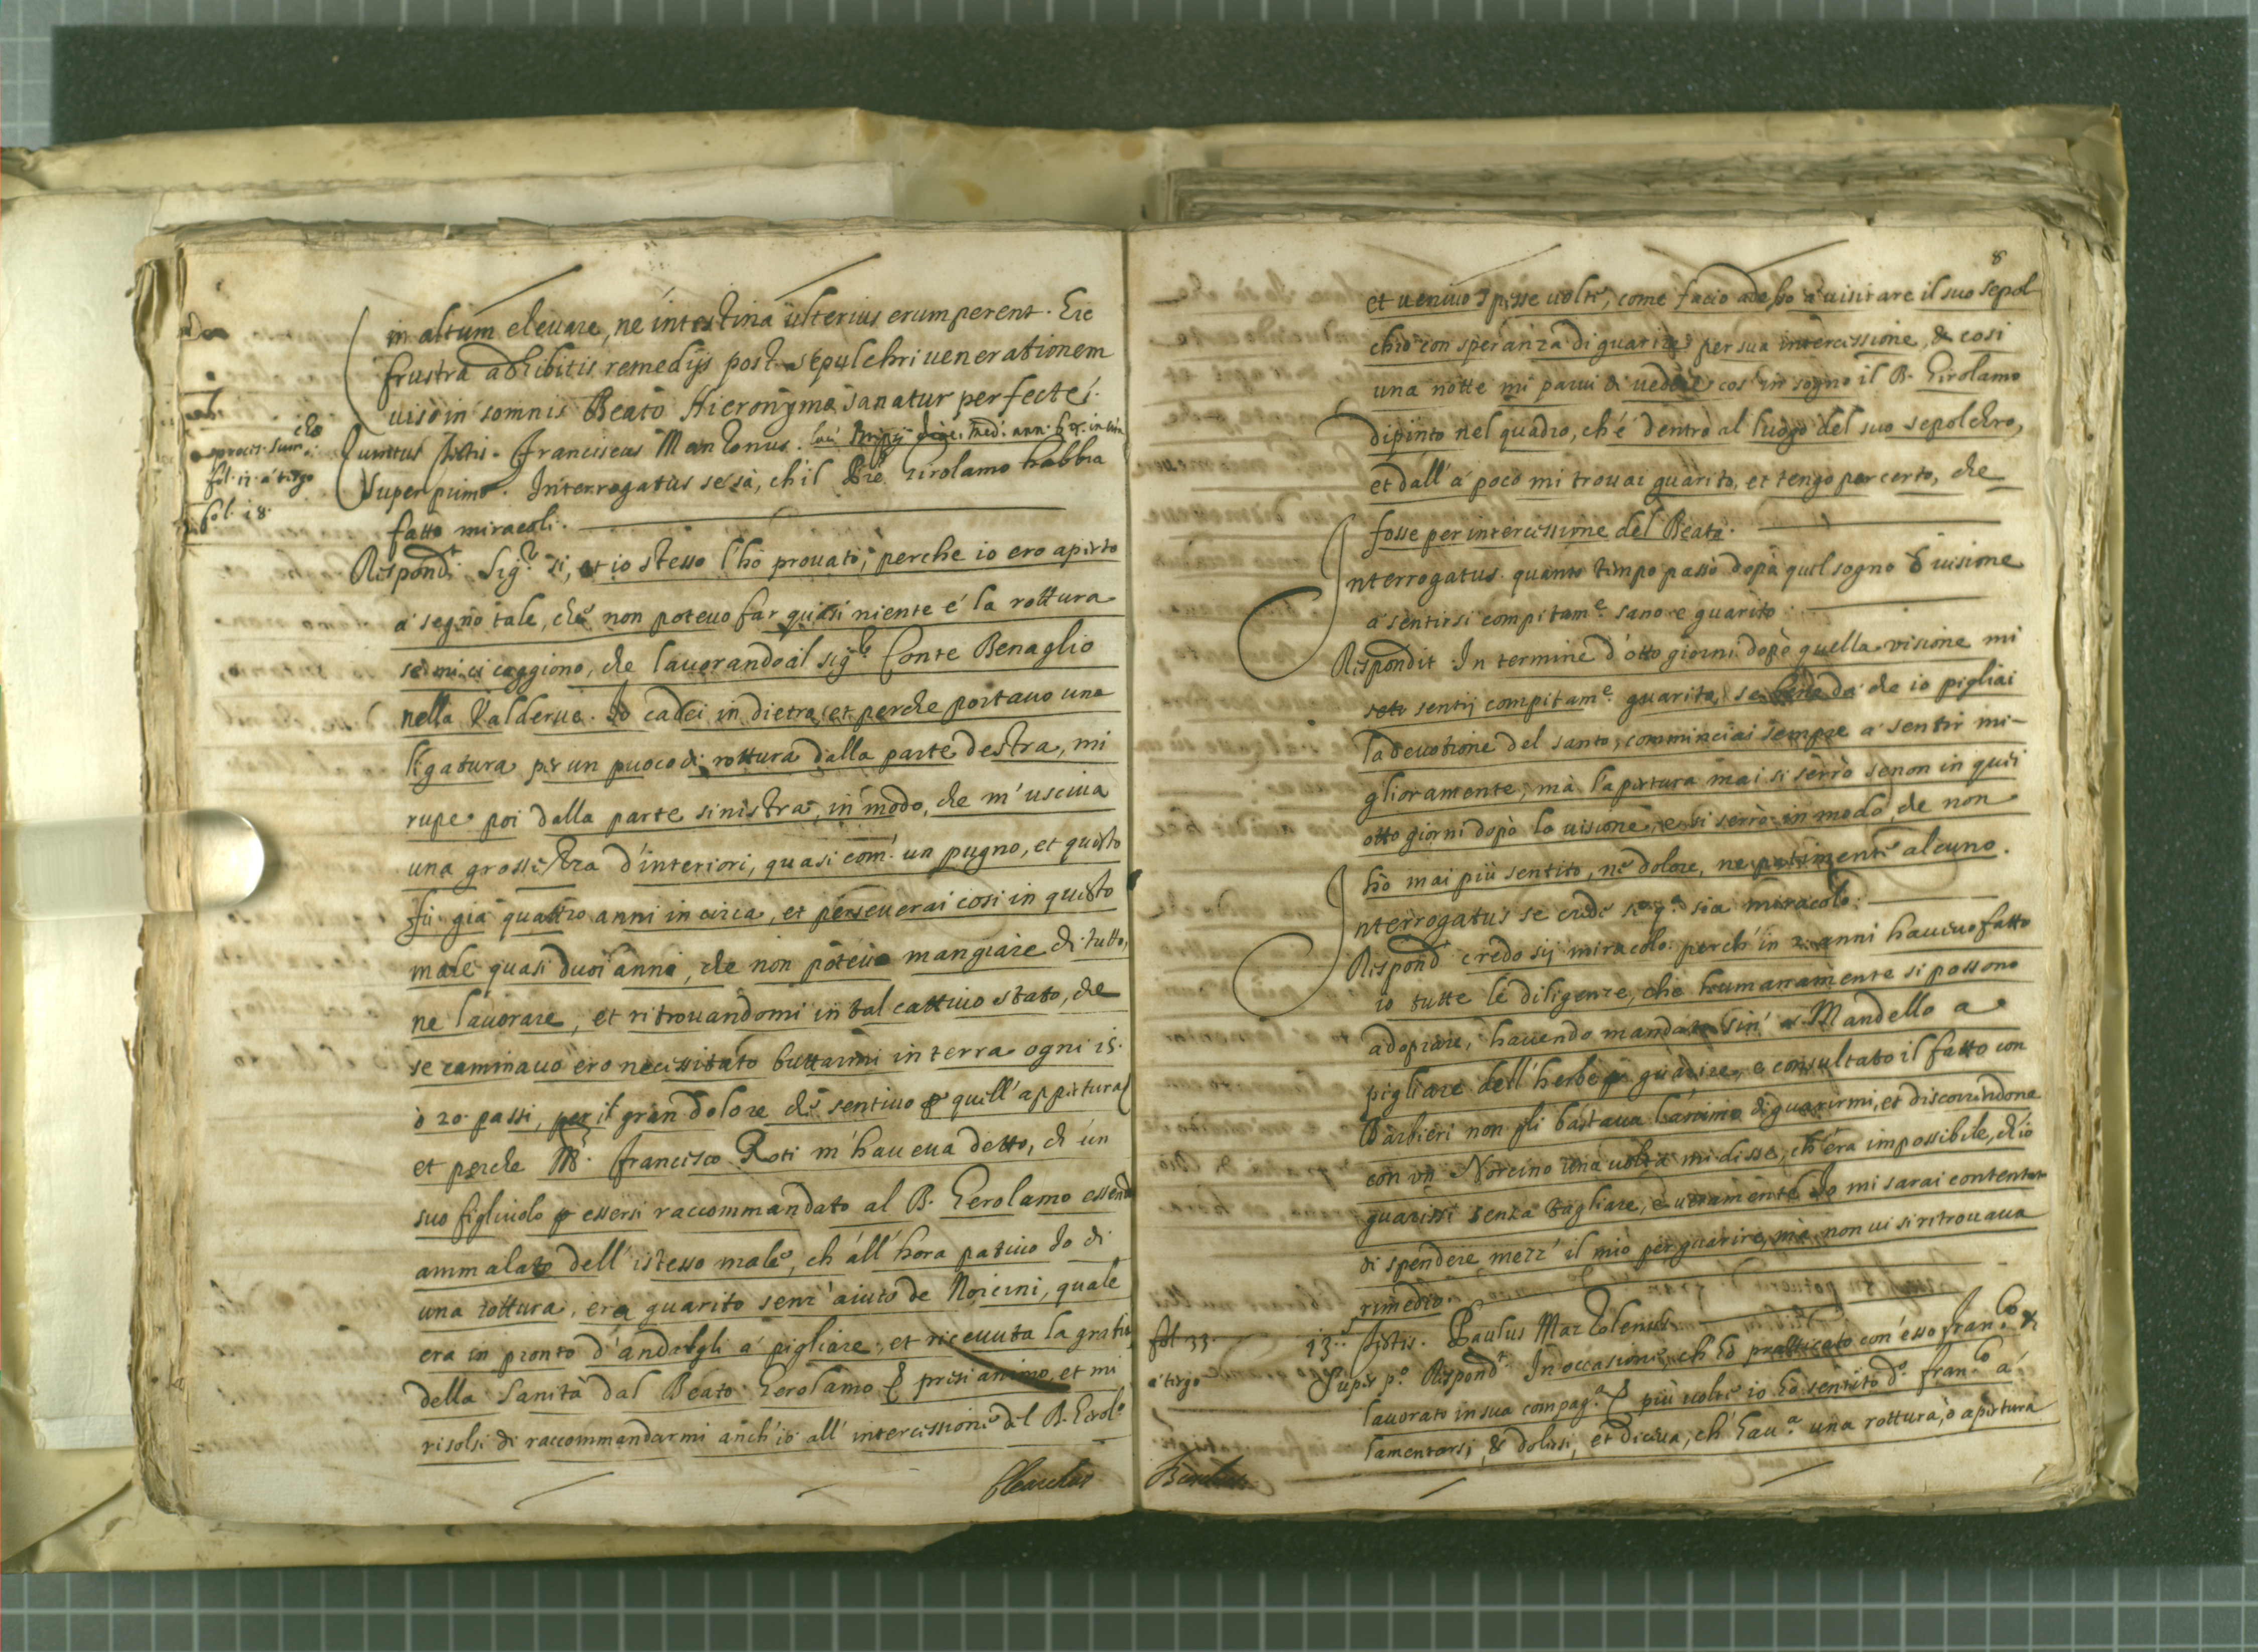 in altum eleuare, ne intestina ulterius erumperent. Et
frustra adhibitis remedijs post sepulchri uenerationem
uiso in somnis Beato Hieronymo sanatur perfecte.
Franciscus Manzonus.
process. sum.
fol. 12. a tergo
fol. 18.
super primo. Interrogatus se sà, ch'il Pre Girolamo habbia
fatto miracoli.
Respondt. Sigr. si, et io stesso l'hò prouato, perche io ero aperto
a segno tale, che non poteuo far quasi niente é la rottura
se mi ci caggionò, che lauorando al sigr. Conte Benaglio
nella Valderue. Io cadei in dietro, et perche portauo una
ligatura per un puoco di rottura dalla parte destra, mi
rupe poi dalla parte sinistra, in modo, che m'usciua
una grossezza d'interiori, quasi com' un pugno, et questo
fù gia quattro anni in circa, et perseuerai cosi in questo
male quasi duoi anni, che non poteuo mangiare di tutto,
ne lauorare, et ritrouandomi in tal cattiuo stato, che
se caminauo ero necessitato buttarmi in terra ogni 15.
ò 20. passi, per il gran dolore che sentiuo p quell'appertura
et perche Mr. Francisco Roti m'haueua detto, ch' un
suo figliuolo p essersi raccommandato al B. Gerolamo essendo
ammalato dell'istesso male, ch'all'hora patiuo Io di
una rottura, era guarito senz'aiuto de Norcini, quale
era in pronto d'andargli a pigliare, et riceuuta la gratia
della Sanità dal Beato Gerolamo presi animo, et mi
risolsi di raccommandarmi anch'io all'intercessione del B. Gerolo
8
et ueniuo spesse uolte, come facio adesso a uisitare il suo sepol
chro con speranza di guarire per sua intercessione, & cosi
una notte mi parui di uedere cosi in sogno il B. Girolamo
dipinto nel quadro, ch'é dentro al luogo del suo sepolchro,
et dall'a poco mi trouai guarito, et tengo per certo, che
fosse per intercessione del Beato.
Interrogatus. quanto tempo passò dopò quel sogno ò uisione
a sentirsi compitame. sano e guarito.
Respondit In termine d'otto giorni dopò quella visione mi
sentij compitame. guarito, se da che io pigliai
la deuotione del santo, comminciai sempre a sentir mi-
glioramente, mà l'apertura mai si serrò senon in quei
otto giorni dopò la uisione, e si serrò in modo, che non
hò mai più sentito, ne dolore, ne patimento alcuno.
Interrogatus se crede sia miracolo.
Respondt credo sij miracolo. perch' in 2. anni haueuo fatto
io tutte le diligenze, che humanamente si possono
adoprare, hauendo mandato sin' a Mandello a
pigliare dell'herbe p guarire, e consultato il fatto con
Barbieri non gli bastaua l'animo di guarirmi, et discorrendone
con un Norcino una uolta mi disse, ch'era impossibile, ch'io
guarissi senza tagliare, e ueramente Io mi sarai contentato
di spendere mezz'il mio per guarire, mà non ui si ritrouaua
rimedio.
fol. 33.
a tergo
13.s testis. Paulus Mazzolenus
Super po. Respondt. In occasione, ch'hò pratticato con esso Franco. &
lauorato in sua compaga. più uolte io hò sentito do. Franco a
lamentarsi, & dolersi, et diceua, ch'haua. una rottura, ò apertura